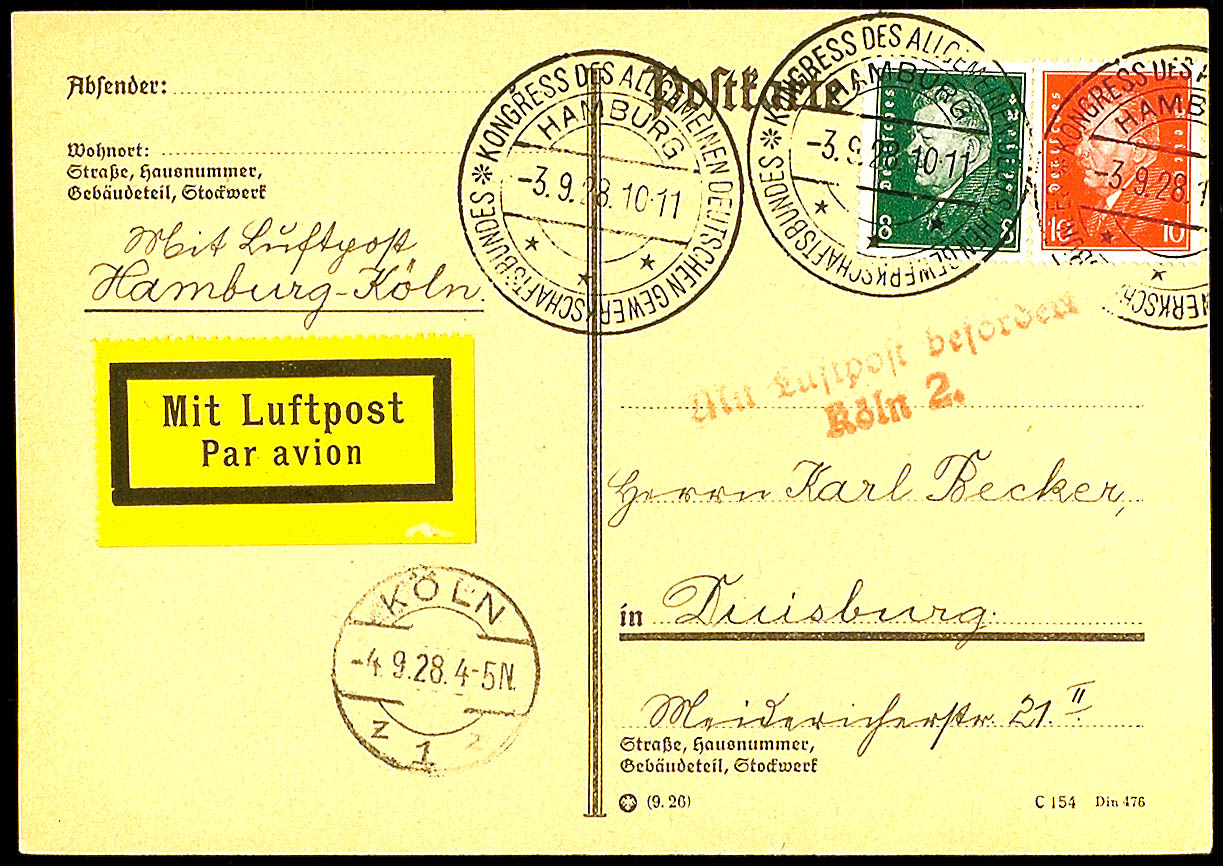 Absender:
Wohnort:
Straße, Hausnummer,
Gebäudeteil, Stockwerk
Mit Luftpost
Hamburg-Köln.
Mit Luftpost
Par avion
KÖLN
-4.9.28.4-5N.
z 1 z
Postkarte
* KONGRESS DES ALLGEMEINEN DEUTSCHEN GEWERKSCHAFTSBUNDES
HAMBURG
-3.9.28.10-11
* KONGRESS DES ALLGEMEINEN DEUTSCHEN GEWERKSCHAFTSBUNDES
HAMBURG
-3.9.28.10-11
Deutsches Reich
8 8
KONGRESS DES
HAMB
-3.9.28.1
Deutsches Reich
10 10
Mit Luftpost befördert
Köln 2.
Herrn Karl Becker,
in Duisburg.
Meidericherstr. 21. II
Straße, Hausnummer,
Gebäudeteil, Stockwerk
(9. 26)
C 154 Din 476